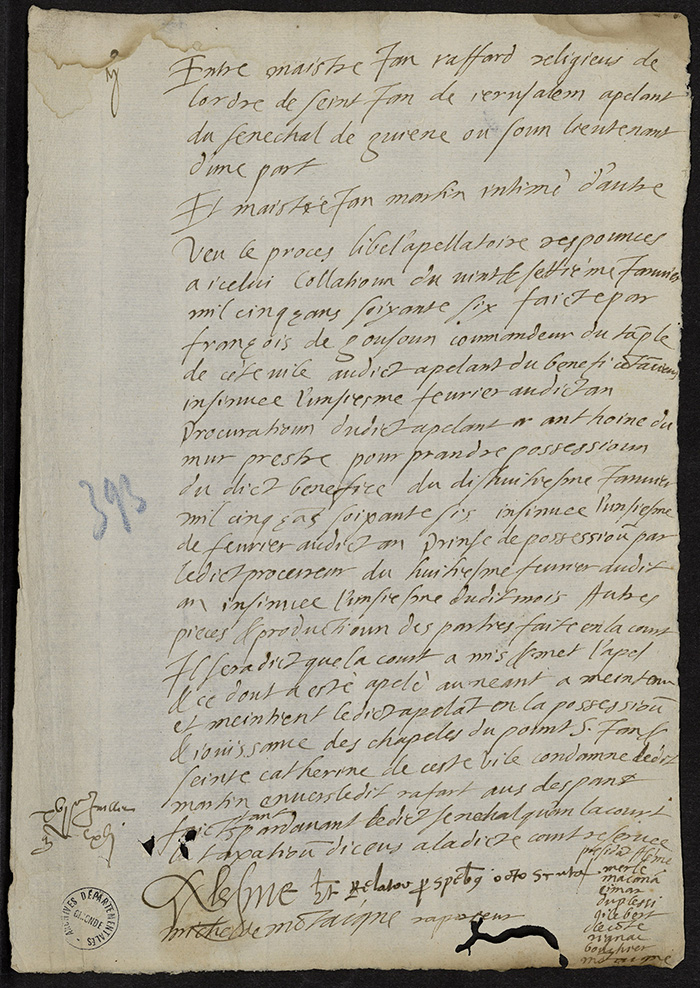 Entre maistre Jan raffard religieus de
lordre de seint Jan de ierusalem apelant
du senechal de guiene ou soun lieutenant
d'une part
Et maistre Jan martin intimé d'autre
Veu le proces libel apellatoire respounces
a icelui Collatioun du vint & settiéme Janvier
mil cinq çans soixante six faicte par
françois de gousoun coumandeur du tample
de cete vile audict apelant du benefice
insinuee l'unsiesme feurier audict an
Procuratioun dudict apelant a anthoine du
mur prestre pour prandre possessioun
du dict benefice du dishuitiesme Janvier
mil cinq çans soixante sis insinuee l'unsiesme
de feurier audict an Prinse de possessioũ par
ledict procureur du huitiesme feurier audit
an insinuee l'unsiesme dudit mois Autres
pieces & productioun des partres faite en la court
Il sera dict que la court a mis & met l'apel
& ce dont a esté apelé au neant a meintenu
et meintient ledict apelãt en la possessioũ
& iouissance des chapeles du poiint S. Jan &
seinte catherine de ceste vile condamne ledit
martin enuers ledit rafart aus despans
faicts tant pardauant ledict senechal qu'en la court
la taxatioũ diceus a la dicte court reseruee
president Alesme
merle
macana
eimar
du plessi
gilebert
de coste
rignac
bouchier
mõtaigne
Alesme
Relator octo scuta
michel de mõtaigne raporteur
Juillet
393
ARCHIVES DÉPARTEMENTALES
GIRONDE